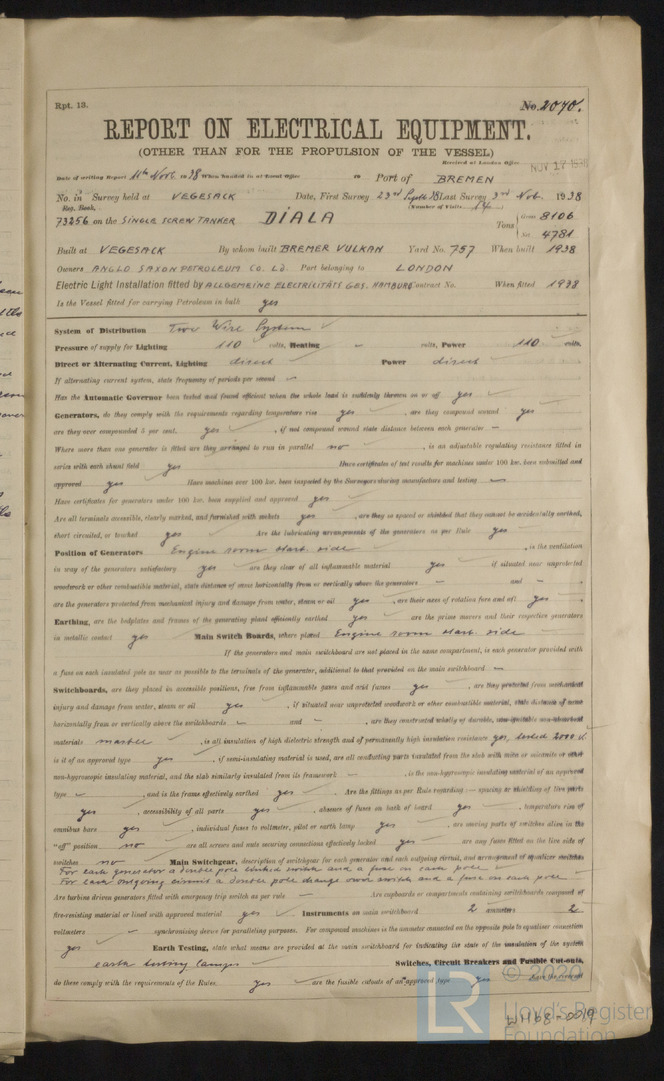 Rpt. 13.
No. 2070.
REPORT ON ELECTRICAL EQUIPMENT.
(OTHER THAN FOR THE PROPULSION OF THE VESSEL)
Received at London Office
NOV 17 1938
Date of writing Report 11th Novb. 1938 When handed in at Local Office 19 Port of BREMEN
No. in Survey held at VEGESACK Date, First Survey 23rd Septb 38 Last Survey 3rd Nov. 1938
Reg. Book. (Number of Visits
73256 on the SINGLE SCREW TANKER DIALA Tons Gross 8106
Net 4781
Built at VEGESACK By whom built BREMER VULKAN Yard No. 757 When built 1938
Owners ANGLO SAXON PETROLEUM CO. LD. Port belonging to LONDON
Electric Light Installation fitted by ALLGEMEINE ELECTRICITÄTS GES. HAMBURG Contract No. When fitted 1938
Is the Vessel fitted for carrying Petroleum in bulk yes
System of Distribution Two Wire System
Pressure of supply for Lighting 110 volts, Heating – volts, Power 110 volts.
Direct or Alternating Current, Lighting direct Power direct
If alternating current system, state frequency of periods per second –
Has the Automatic Governor been tested and found efficient when the whole load is suddenly thrown on or off yes
Generators, do they comply with the requirements regarding temperature rise yes , are they compound wound yes
are they over compounded 5 per cent. yes , if not compound wound state distance between each generator –
Where more than one generator is fitted are they arranged to run in parallel no , is an adjustable regulating resistance fitted in
series with each shunt field yes Have certificates of test results for machines under 100 kw. been submitted and
approved yes Have machines over 100 kw. been inspected by the Surveyors during manufacture and testing –
Have certificates for generators under 100 kw. been supplied and approved yes
Are all terminals accessible, clearly marked, and furnished with sockets yes , are they so spaced or shielded that they cannot be accidentally earthed,
short circuited, or touched yes Are the lubricating arrangements of the generators as per Rule yes
Position of Generators Engine room starb. side , is the ventilation
in way of the generators satisfactory yes are they clear of all inflammable material yes if situated near unprotected
woodwork or other combustible material, state distance of same horizontally from or vertically above the generators – and –
are the generators protected from mechanical injury and damage from water, steam or oil yes , are their axes of rotation fore and aft yes
Earthing, are the bedplates and frames of the generating plant efficiently earthed yes are the prime movers and their respective generators
in metallic contact yes Main Switch Boards, where placed Engine room starb. side
If the generators and main switchboard are not placed in the same compartment, is each generator provided with
a fuse on each insulated pole as near as possible to the terminals of the generator, additional to that provided on the main switchboard –
Switchboards, are they placed in accessible positions, free from inflammable gases and acid fumes yes , are they protected from mechanical
injury and damage from water, steam or oil yes , if situated near unprotected woodwork or other combustible material, state distance of same
horizontally from or vertically above the switchboards – and – , are they constructed wholly of durable, non-ignitable non-absorbent
materials , is all insulation of high dielectric strength and of permanently high insulation resistance yes, tested 2000
is it of an approved type yes , if semi-insulating material is used, are all conducting parts insulated from the slab with mica or micanite or other
non-hygroscopic insulating material, and the slab similarly insulated from its framework – , is the non-hygroscopic insulating material of an approved
type – , and is the frame effectively earthed yes . Are the fittings as per Rule regarding :— spacing or shielding of live parts
yes , accessibility of all parts yes , absence of fuses on back of board yes , temperature rise of
omnibus bars yes , individual fuses to voltmeter, pilot or earth lamp yes , are moving parts of switches alive in the
"off" position no are all screws and nuts securing connections effectively locked yes are any fuses fitted on the live side of
switches no Main Switchgear, description of switchgear for each generator and each outgoing circuit, and arrangement of equaliser switches
For each generator a double pole linked switch and a fuse on each pole
For each outgoing circuit a double pole change over switch and a fuse on each pole
Are turbine driven generators fitted with emergency trip switch as per rule – Are cupboards or compartments containing switchboards composed of
fire-resisting material or lined with approved material yes Instruments on main switchboard 2 ammeters 2
voltmeters – synchronising device for paralleling purposes. For compound machines is the ammeter connected on the opposite pole to equaliser connection
yes Earth Testing, state what means are provided at the main switchboard for indicating the state of the insulation of the system
earth testing lamps Switches, Circuit Breakers and Fusible Cut-outs,
do these comply with the requirements of the Rules. yes , are the fusible cutouts of an approved type yes
© 2020
LR
Lloyd's Register
Foundation
W1168-0019